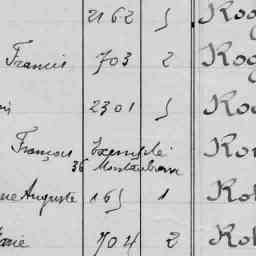 2162 5 Rog
Francis 703 2 Rog
is 2301 5
François Exempté
36 Montauban
Auguste 165 1 Rol
arie 704 2 Rol